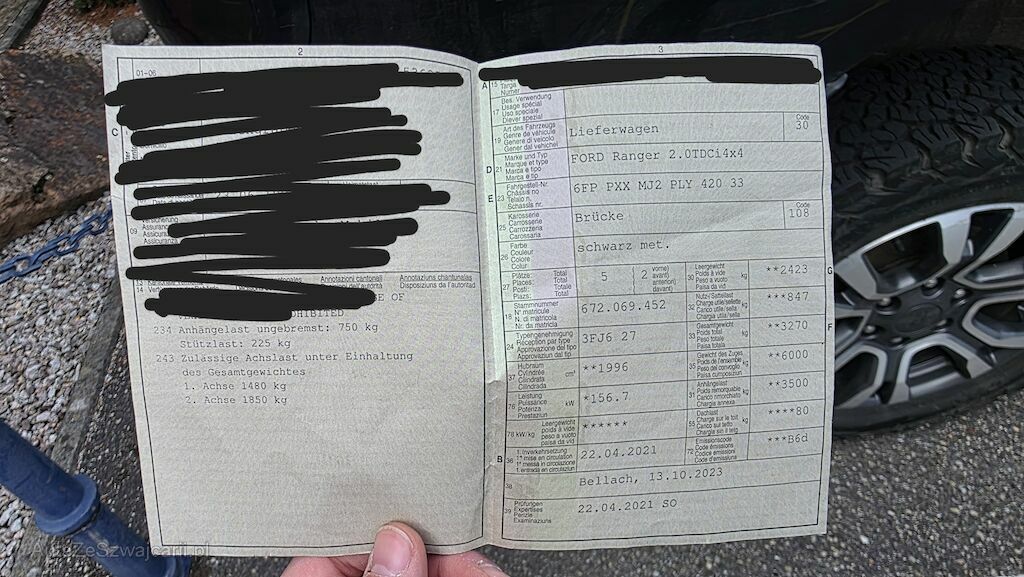 2
01-06
C
09
Versicherung
14
Annotazioni cantonali Annotaziuns chantunalas
Disposizioni dell'autorità Disposiziuns da l'autoritad
E OF
OHIBITED
234 Anhängelast ungebremst: 750 kg
Stützlast: 225 kg
243 Zulässige Achslast unter Einhaltung
des Gesamtgewichtes
1. Achse 1480 kg
2. Achse 1850 kg
3
A 15 Targa
Numer
17 Bes. Verwendung
Usage spécial
Uso speciale
Diever spezial
19 Art des Fahrzeugs
Genre de véhicule
Genere di veicolo
Gener dal vehichel
Lieferwagen
Code
30
D 21 Marke und Typ
Marque et type
Marca e tipo
Marca e tip
FORD Ranger 2.0TDCi4x4
E 23 Fahrgestell-Nr.
Châssis no
Telaio n.
Schassis nr.
6FP PXX MJ2 PLY 420 33
25 Karosserie
Carrosserie
Carrozzeria
Carossaria
Brücke
Code
108
26 Farbe
Couleur
Colore
Colur
schwarz met.
27 Plätze: Total
Places: Total
Posti: Totale
Plazs: Total
5 (2 vorne)
avant)
anteriori)
davant)
30 Leergewicht
Poids à vide
Peso a vuoto
Paisa da vid
kg
**2423
G
18 Stammnummer
N° matricule
N. di matricola
Nr. da matricla
672.069.452
32 Nutz-/Sattellast
Charge utile/sellette
Carico utile/sella
Chargia utila/sella
kg
***847
24 Typengenehmigung
Réception par type
Approvazione del tipo
Approvaziun dal tip
3FJ6 27
33 Gesamtgewicht
Poids total
Peso totale
Paisa totala
kg
**3270
F
37 Hubraum
Cylindrée
Cilindrata
Cilindrada
cm³
**1996
35 Gewicht des Zuges
Poids de l'ensemble
Peso del convoglio
Paisa cumposiziun
kg
**6000
76 Leistung
Puissance
Potenza
Prestaziun
kW
*156.7
31 Anhängelast
Poids remorquable
Carico rimorchiato
Chargia annexa
kg
**3500
78 kW/kg
Leergewicht
poids à vide
peso a vuoto
paisa da vid
******
55 Dachlast
Charge sur le toit
Carico sul tetto
Chargia sin il tetg
kg
****80
B 36 1. Inverkehrsetzung
1re mise en circulation
1a messa in circolazione
1. entrada en circulaziun
22.04.2021
72 Emissionscode
Code émissions
Codice emissioni
Code d'emissiuns
***B6d
38 Bellach, 13.10.2023
39 Prüfungen
Expertises
Perizie
Examinaziuns
22.04.2021 SO
AutoZeSzwajcarii.pl